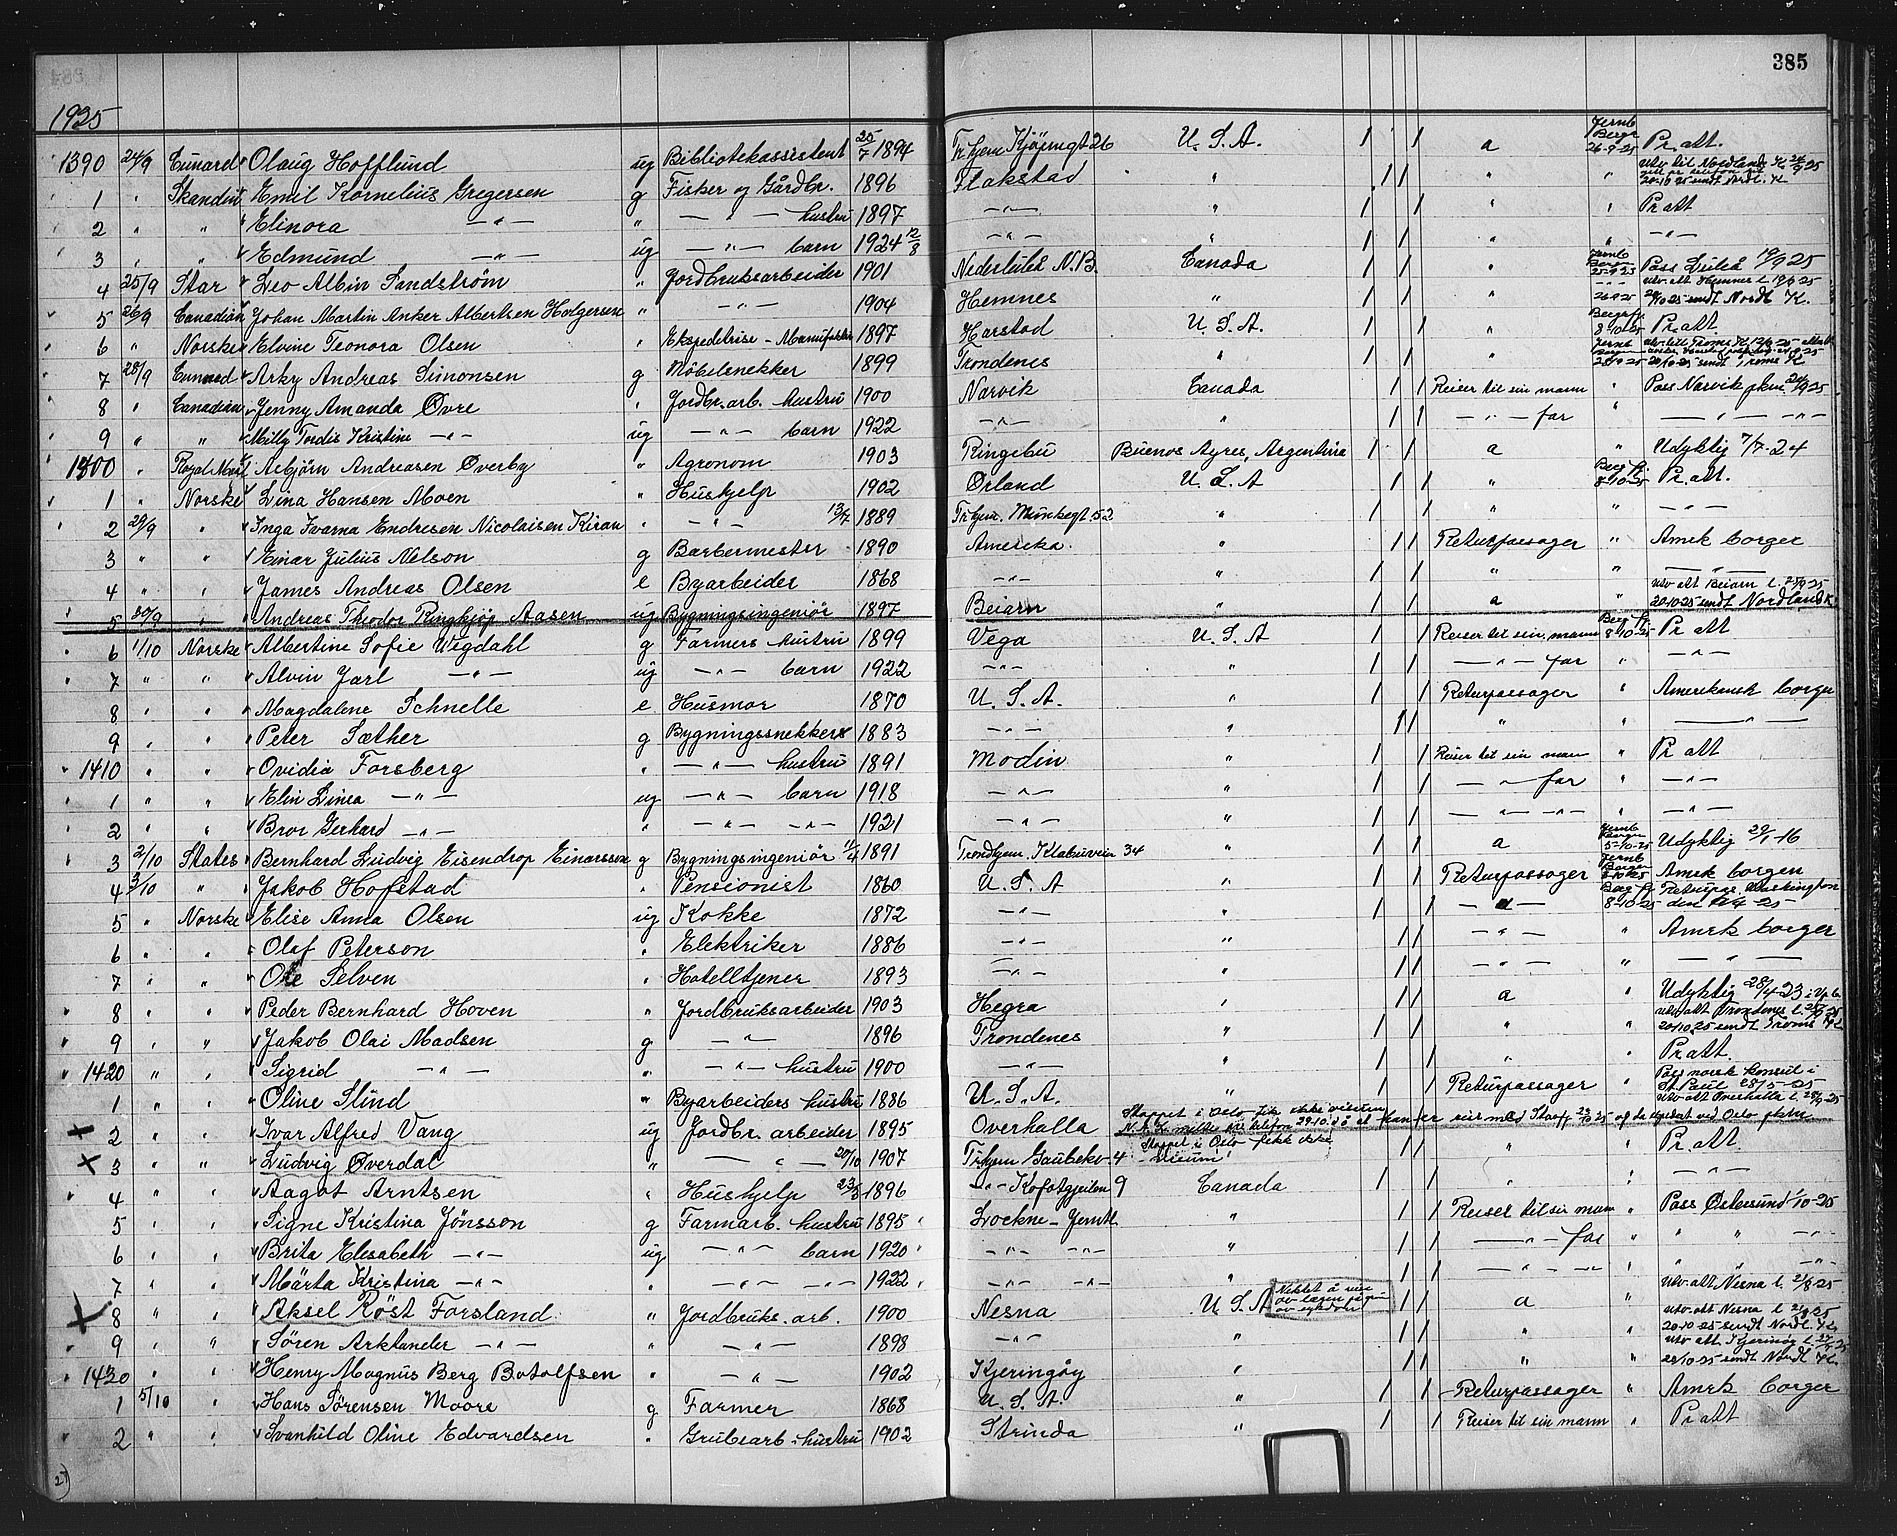 385
1925
1390 24/9 Cunard Olaug Hofflund ug Bibliotekassistent 25/7 1894 Tr.hjem Kjøpmgt 26 U.S.A. 1 1 a Jernb Bergr 26-9-25 Pr. att.
1 " Skandin Emil Kornelius Gregersen g Fisker og Gårdbr. 1896 Flakstad " 1 1 " " utv til Nordland 20-10-25 sendt Nordl. K
2 " " Elinora —"— " —"— hustru 1897 —"— " 1 1 " " Pr att
3 " " Edmund —"— ug —"— barn 1924 12/8 —"— " 1 1 " " —"—
4 25/9 Star Leo Albin Sandstrøm " Jordbruksarbeider 1901 Nederluleå N.B. Canada 1 1 " Jernb Bergen 25-9-25 Pass Luleå 19/9 25
5 26/9 Canadian Johan Martin Anker Albertsen Holgersen " —"— 1904 Hemnes " 1 1 " 26-9-25 utv. att Hemnes l. 19/9 25 20/10 25 sendt Nordl K.
6 " Norske Elvine Teonora Olsen " Ekspeditrise - Manufaktur 1897 Harstad U.S.A. 1 1 " Bergsfj. 8-10-25 Pr. att.
7 28/9 Cunard Arky Andreas Simonsen g Møbelsnekker 1899 Trondenes " 1 1 " Jernb Bergen 20/10 25 sendt Troms K
8 " Canadian Jenny Amanda Øvre " Jordbr. arb. hustru 1900 Narvik Canada 1 1 Reiser til sin mann " Pass Narvik pkm. 24/9 25
9 " " Milly Tordis Kristine —"— ug —"— barn 1922 —"— " 1 1 —"— far " —"— —"—
1400 " Royal Mail Asbjørn Andreasen Øverby " Agronom 1903 Ringebu Buenos Ayres, Argentina 1 1 a " Udyktig 7/7-24
1 " Norske Lina Hansen Moen " Hushjelp 1902 Ørland U.S.A 1 1 " Berg. fj. 8-10-25 Pr. att.
2 29/9 " Inga Ivarna Endresen Nicolaisen Kiran " —"— 13/7 1889 Tr.hjem. Munkegt. 52 " 1 1 " " —"—
3 " " Einar Julius Nelson g Barbermester 1890 Amerika. " 1 1 Returpassager " Amrk borger
4 " " James Andreas Olsen e Byarbeider 1868 —"— " 1 1 " " —"—
5 30/9 " Andreas Theodor Ringkjøp Aasen ug Bygningsingeniør 1897 Beiarn " 1 1 a " utv att Beiarn l. 28/9 25 20-10-25 sendt Nordland K
6 1/10 Norske Albertine Sofie Wigdahl g Farmers hustru 1899 Vega U.S.A 1 1 Reiser til sin mann Berg. fj. 8-10-25 Pr att
7 " " Alvin Jarl —"— ug —"— barn 1922 —"— " 1 1 —"— far " —"—
8 " " Magdalene Schnelle e Husmor 1870 U.S.A. " 1 1 Returpassager " Amerikansk borger
9 " " Peter Sæther g Bygningssnekker 1883 —"— " 1 1 " " —"—
1410 " " Ovidia Forsberg " —"— hustru 1891 Modin " 1 1 Reiser til sin man " Pr att
1 " " Elin Linea —"— ug —"— barn 1918 —"— " 1 1 —"— far " —"—
2 " " Bror Gerhard —"— " —"— —"— 1921 —"— " 1 1 —"— —"— " —"—
3 2/10 States Bernhard Ludvig Eisendrop Einarsson g Bygningsingeniør 11/4 1891 Trondhjem, Klæbuveien 34 " 1 1 a Jernb Bergen 5-10-25 Udyktig 29/1-16
4 3/10 " Jakob Hofstad " Pensionist 1860 U.S.A " 1 1 Returpassager Jernb Bergen Amrk borger
5 " Norske Elise Anna Olsen ug Kokke 1872 —"— " 1 1 —"— Berg. fj. 8-10-25 Returpas. Washington
6 " " Olaf Peterson " Elektriker 1886 —"— " 1 1 —"— " Amrk borger
7 " " Ole Selven " Hotelltjener 1893 —"— " 1 1 —"— " —"—
8 " " Peder Bernhard Hoven " Jordbruksarbeider 1903 Hegra " 1 1 a " Udyktig 28/4-23
9 " " Jakob Olai Madsen g —"— 1896 Trondenes " 1 1 " " utv. att Trondenes l. 20/10 25 sendt Troms K
1420 " " Sigrid —"— " —"— hustru 1900 —"— " 1 1 " " Pr att.
1 " " Oline Slind " Byarbeiders hustru 1886 U.S.A. " 1 1 Returpassager " Pass norsk konsul i St Paul 28/5-25
2 " " Ivar Alfred Vang ug Jordbr. arbeider 1895 Overhalla Stoppet i Oslo fik ikke visum utv att Overhalla l.
3 " " Ludvig Øverdal " —"— 20/10 1907 Tr.hjem Gaubekv. 4 Stoppet i Oslo fikk ikke visum 1 1 " " Pr att.
4 " " Aagot Arntsen " Hushjelp 23/5 1896 —"— 9 Canada 1 1 " " —"—
5 " " Signe Kristina Jönsson g Farmarb. hustru 1895 Lockne - Jemtl. " 1 1 Reiser til sin mann " Pass Østersund 1/10-25
6 " " Brita Elisabeth —"— ug —"— barn 1920 —"— —"— " 1 1 —"— far " " " —"—
7 " " Märta Kristina —"— " —"— —"— 1922 —"— —"— " 1 1 —"— —"— " " " —"—
8 " " Aksel Röst Forsland " Jordbruks. arb. 1900 Nesna U.S.A 1 1 a " utv. att Nesna l. 21/9 25
9 " " Sören Arklander —"— " —"— 1898 —"— " 1 1 " " utv. att Nesna l 21/9 25 20-10-25 sendt Nordl. K
1430 " " Henry Magnus Berg Botolfsen " —"— 1902 Kjeringöy " 1 1 " " utv att. Kjeringöy l 20/10 25 sendt Nordl K
1 5/10 " Hans Sörensen Moore g Farmer 1868 U.S.A. " 1 1 Returpassager " Amrk borger
2 " " Svanhild Oline Edvardsen " Grubearb. hustru 1902 Strinda " 1 1 Reiser til sin mann " Pr att
27